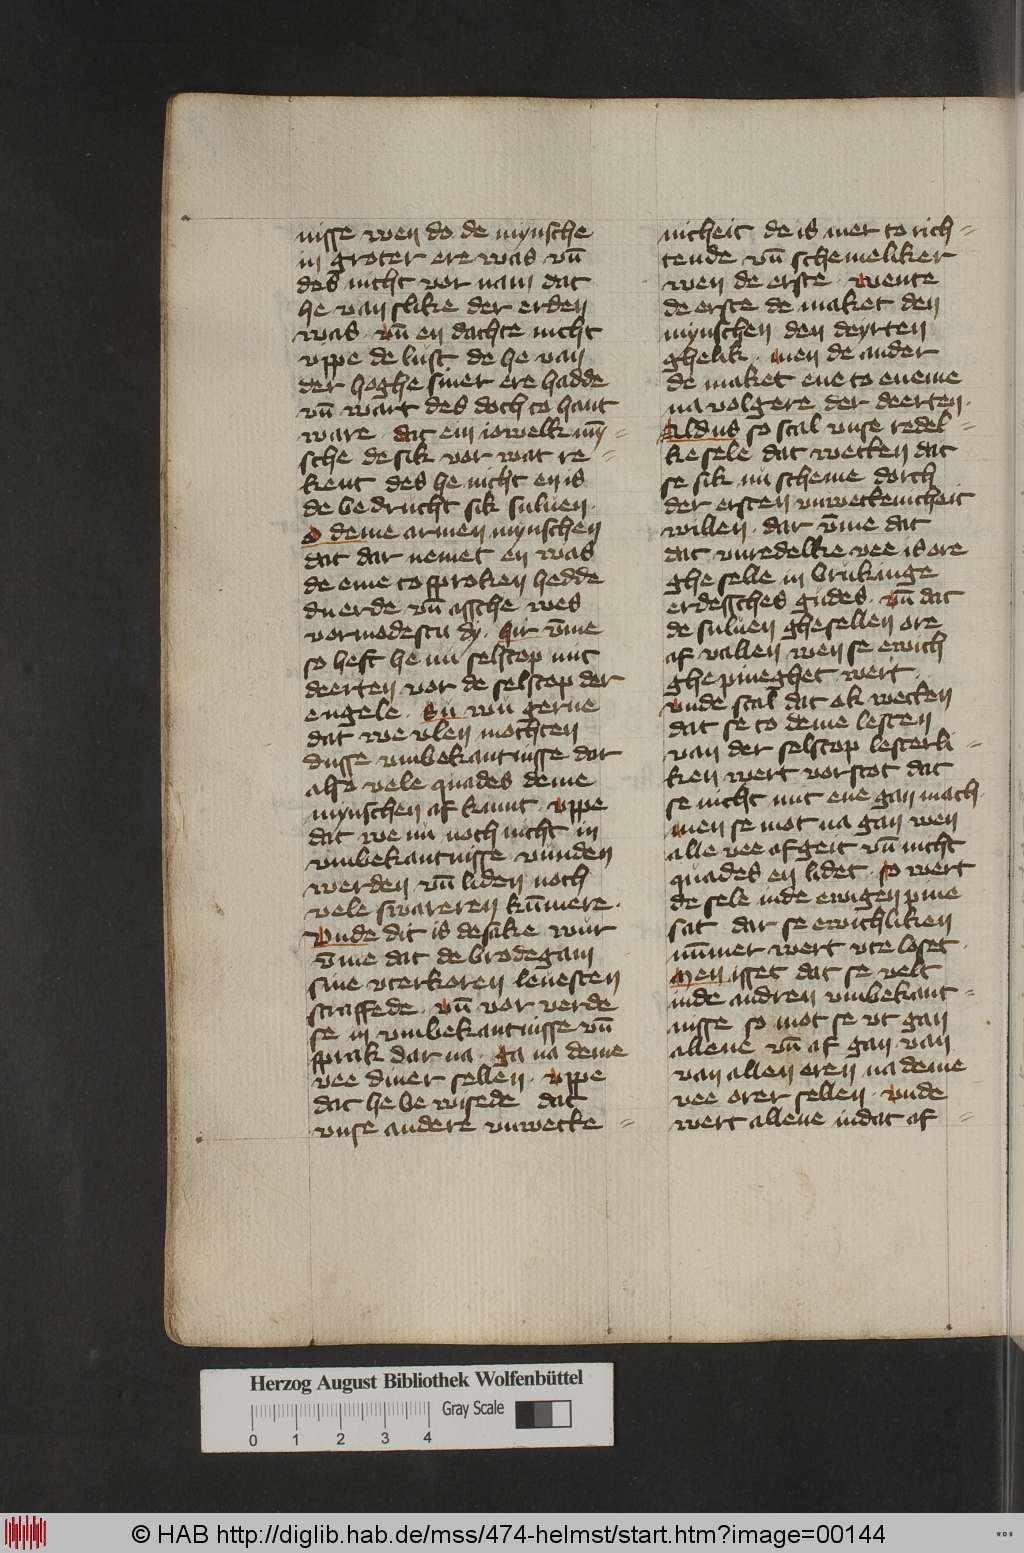 nisse wen do de mynsche
in groter ere was vn̄
des nicht vor nam dat
he van slike der erden
was · vn̄ en dachte nicht
vppe de lust de he van
der hoghe siner ere hadde
vn̄ wart des doch to hant
ware dat ein iowelk mȳ=
sche de sik vor wat re=
kent des he nicht en is
de bedrucht sik suluen ·
O deme armen mynschen
dat dar nemet en was
de eme to sproken hedde
du erde vn̄ assche wes
vormodestu dy · hir v̄me
so heft he nu selscop mit
deerten vor de selscop der
engele · En wu gerne
dat we vlen mochten
dusse vmbekantnisse dar
also vele quades deme
mynschen af kumt · vppe
dat we nu noch nicht in
vmbekantnisse vunden
werden vn̄ liden noch
vele swareren kum̄ere ·
Vnde dit is de sake wur
v̄me dat de brodegam
sine vterkoren leuesten
straffede · vn̄ vor verde
se in vmbekantnisse vn̄
sprak dar na · ga na deme
vee diner sellen · vppe
dat he bewisede dat
vnse andere vnwecke=
nicheit de is mer to rich=
tende vn̄ schemeliker
wen de erste · wente
de erste de maket den
mynschen den deyrten
ghelik · men de ander
de maket ene to eneme
na volgere der deerten ·
Aldus so scal vnse redel=
ke sele dat wecken dat
se sik nu scheme dorch
der ersten vnweckenicheit
willen · dar v̄me dat
dat vnredelke vee is ore
ghe selle in brukinge
erdessches gudes · vn̄ dat
de suluen ghesellen ore
af vallen wen se ewich
ghepineghet wert ·
vnde scal dat ok wecken
dat se to deme lesten
van der selscop lesterli=
ken wert vorstot dat
se nicht mit ene gan moch·
men se mot na gan wen
alle vee afgeit vn̄ nicht
quades en lidet · so wert
de sele inde ewigen pine
sat dar se ewichliken
num̄mer wert vte loset ·
Men isset dat se velt
inde andren vmbekant=
nisse so mot se vt gan
allene vn̄ af gan van
van allen oren na deme
vee orer sellen · vnde
wert allene indat af=
Herzog August Bibliothek Wolfenbüttel
Gray Scale
0 1 2 3 4
© HAB http://diglib.hab.de/mss/474-helmst/start.htm?image=00144